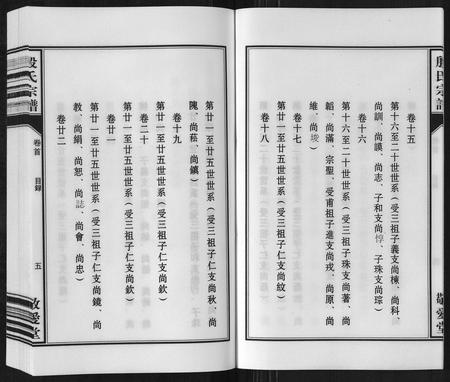 殷氏宗譜
敬愛堂
卷十五
第十六至二十世世系（受三祖子義支尚棟、尚科、
尚訓、尚謨、尚志、子和支尚惇、子珠支尚琮）
卷十六
第十六至二十世世系（受三祖子珠支尚著、尚
韜、尚滿、宗聖、受甫祖子進支尚戎、尚原、尚
維、尚埈）
卷十七
第廿一至廿五世世系（受三祖子仁支尚紋）
卷十八
第廿一至廿五世世系（受三祖子仁支尚秋、尚
隗、尚菘、尚鎮）
卷十九
第廿一至廿五世世系（受三祖子仁支尚欽）
卷二十
第廿一至廿五世世系（受三祖子仁支尚欽）
卷廿一
第廿一至廿五世世系（受三祖子仁支尚鏡、尚
教、尚絹、尚恕、尚誌、尚會、尚忠）
卷廿二
殷氏宗譜
卷首
目録
五
敬愛堂